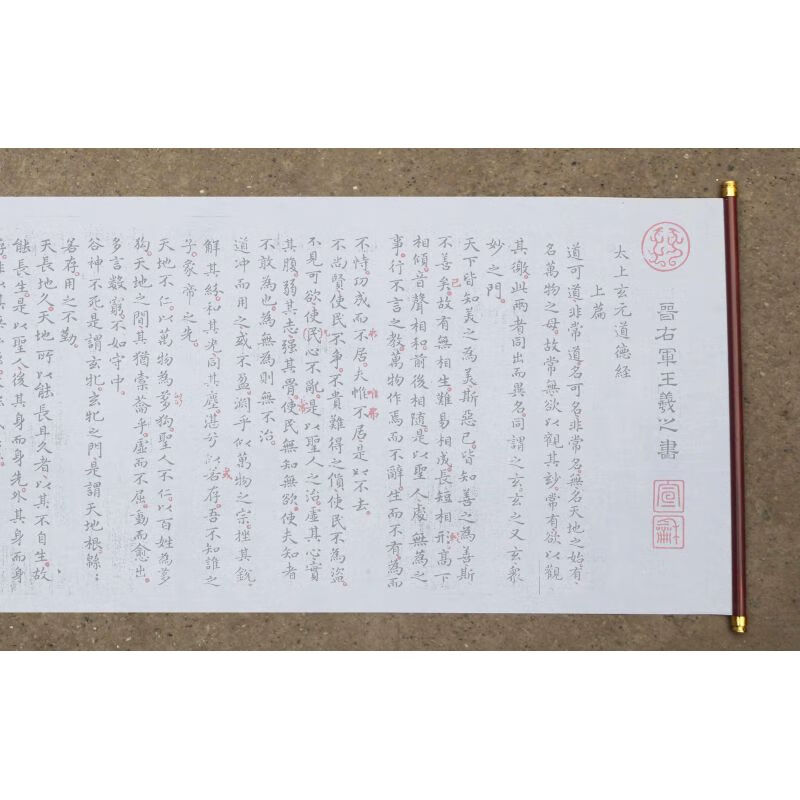 晉右軍王羲之書
宣
龢
太上玄元道德經
上篇
道可道非常道名可名非常名無名天地之始有
名萬物之母故常無欲以觀其妙常有欲以觀
其徼此兩者同出而異名同謂之玄玄之又玄衆
妙之門
天下皆知美之為美斯惡已皆知善之為善斯
不善矣故有無相生難易相成長短相形高下
已
相傾音聲相和前後相隨是以聖人處無為之
事行不言之教萬物作焉而不辭生而不有為而
不恃功成而不居夫惟不居是以不去
弗
唯
弗
不尚賢使民不爭不貴難得之貨使民不為盜
不見可欲使民心不亂是以聖人之治虛其心實
其腹弱其志强其骨使民無知無欲使夫知者
不敢為也為無為則無不治
道冲而用之或不盈淵乎似萬物之宗挫其銳
解其紛和其光同其塵湛兮似若存吾不知誰之
或
子象帝之先
天地不仁以萬物為芻狗聖人不仁以百姓為芻
狗天地之間其猶橐籥乎虛而不屈動而愈出
多言數窮不如守中
谷神不死是謂玄牝玄牝之門是謂天地根緜〻
若存用之不勤
天長地久天地所以能長且久者以其不自生故
能長生是以聖人後其身而身先外其身而身